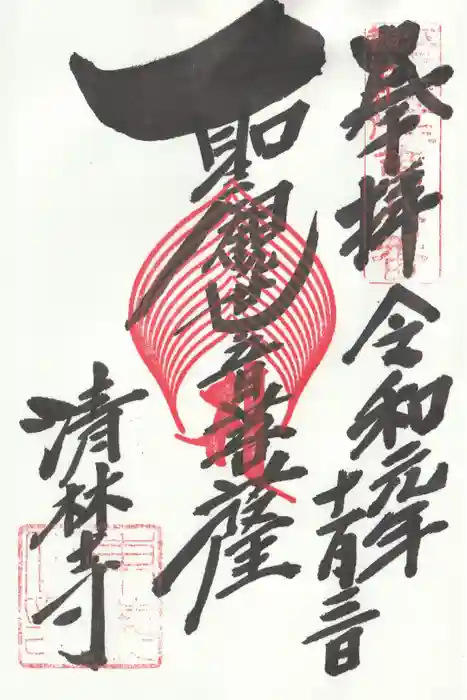 奉拝
令和元年
十一月三日
聖観世音菩薩
清林寺